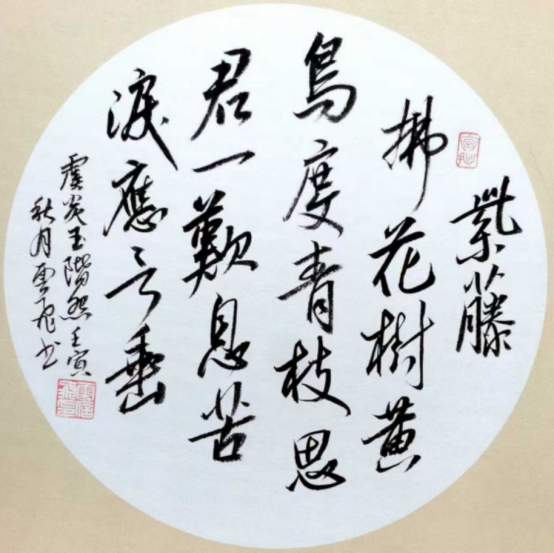 紫藤
拂花樹黄
鳥度青枝思
君一歎息苦
淚應言垂
虞炎玉階怨壬寅
秋月雲飛书